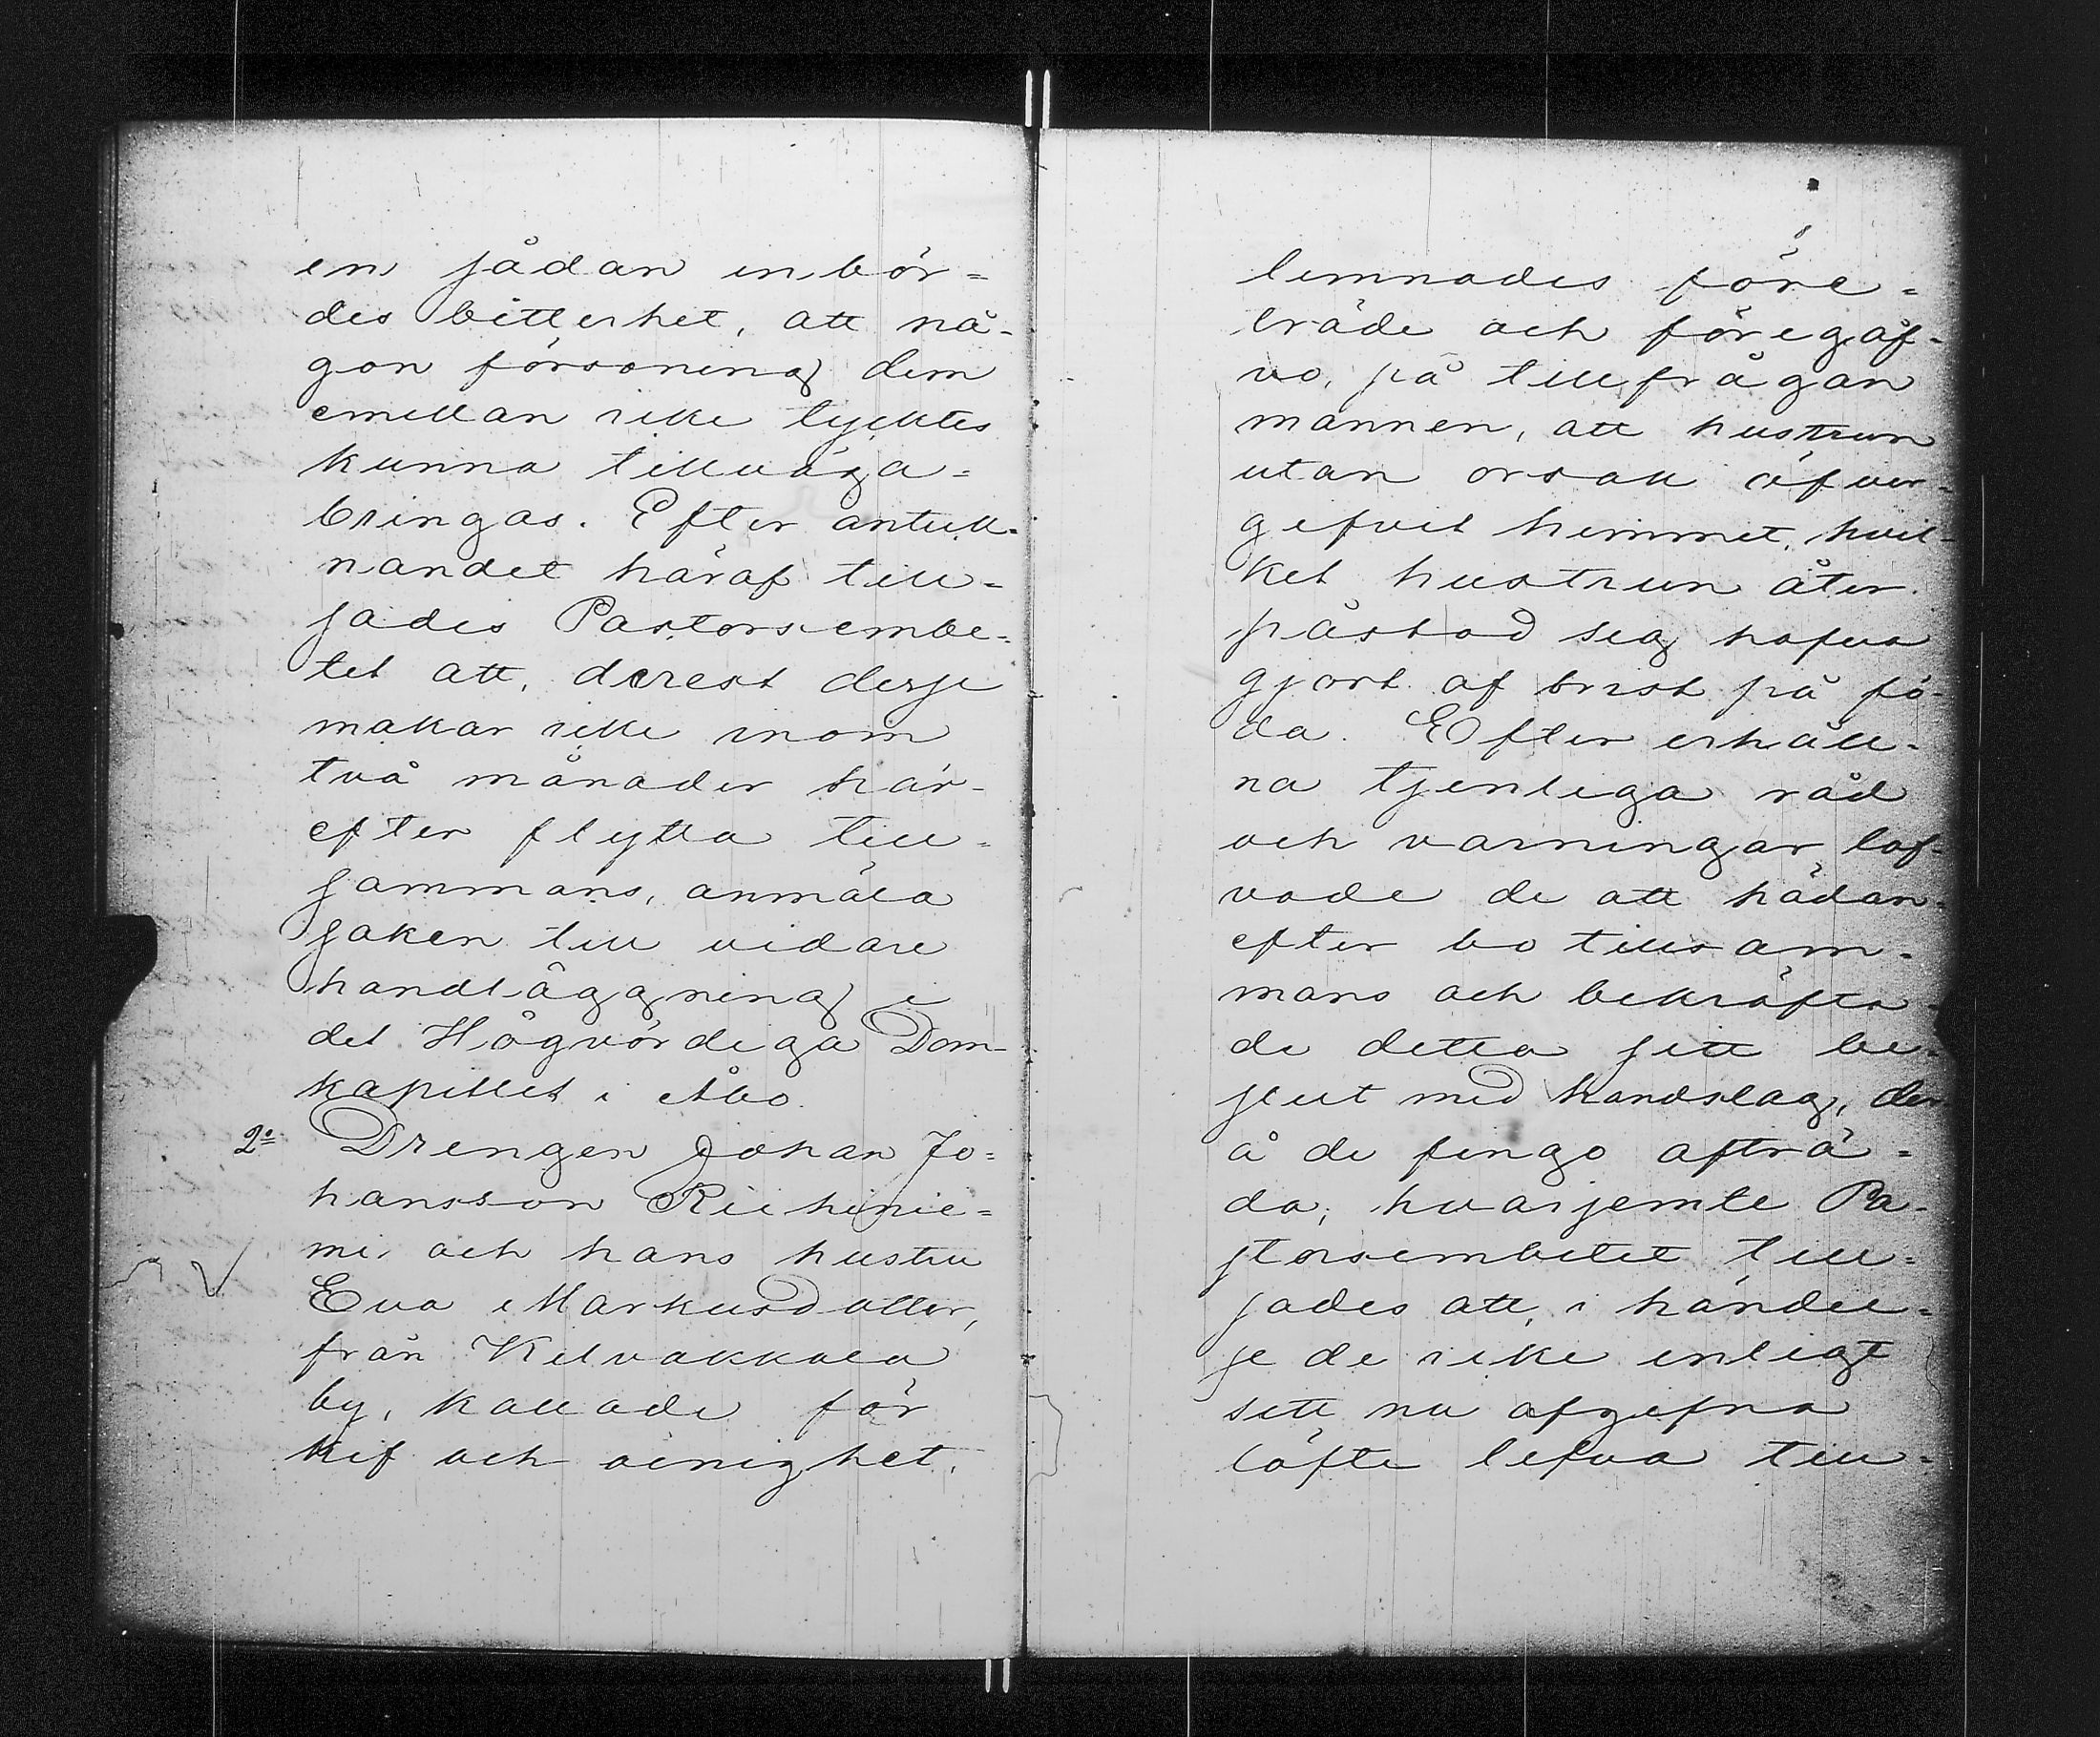 en sådan inbör=
des bitterhet, att nå-
gon försoning dem
emellan icke tycktes
kunna tillväga=
bringas. Efter anteck-
nandet häraf till=
sades Pastorsembe=
tet att, derest desse
makar icke inom
två månader här-
efter flytta till=
sammans, anmäla
saken till vidare
handläggning i
det Högvördiga Dom-
kapitlet i Åbo.
2o Drengen Johan Jo=
hansson Riihinie=
mi och hans hustru
Eva Markusdotter,
från Kilvakkala
by, kallade för
kif och oenighet,
lemnades före=
träde och föregåf-
vo, på tillfrågan
mannen, att hustrun
utan orsak öfver-
gifvit hemmet, hvil-
ket hustrun åter
påstod sig hafva
gjort af brist på fö-
da. Efter erhåll-
na tjenliga råd
och varningar lof-
vade de att hädan-
efter bo tillsam-
mans och bekräfta-
de detta sitt be-
slut med handslag, der-
å de fingo afträ=
da, hvarjemte Pa-
storsembetet till=
sades att, i händel=
se de icke enligt
sitt nu afgifna
löfte lefva till-